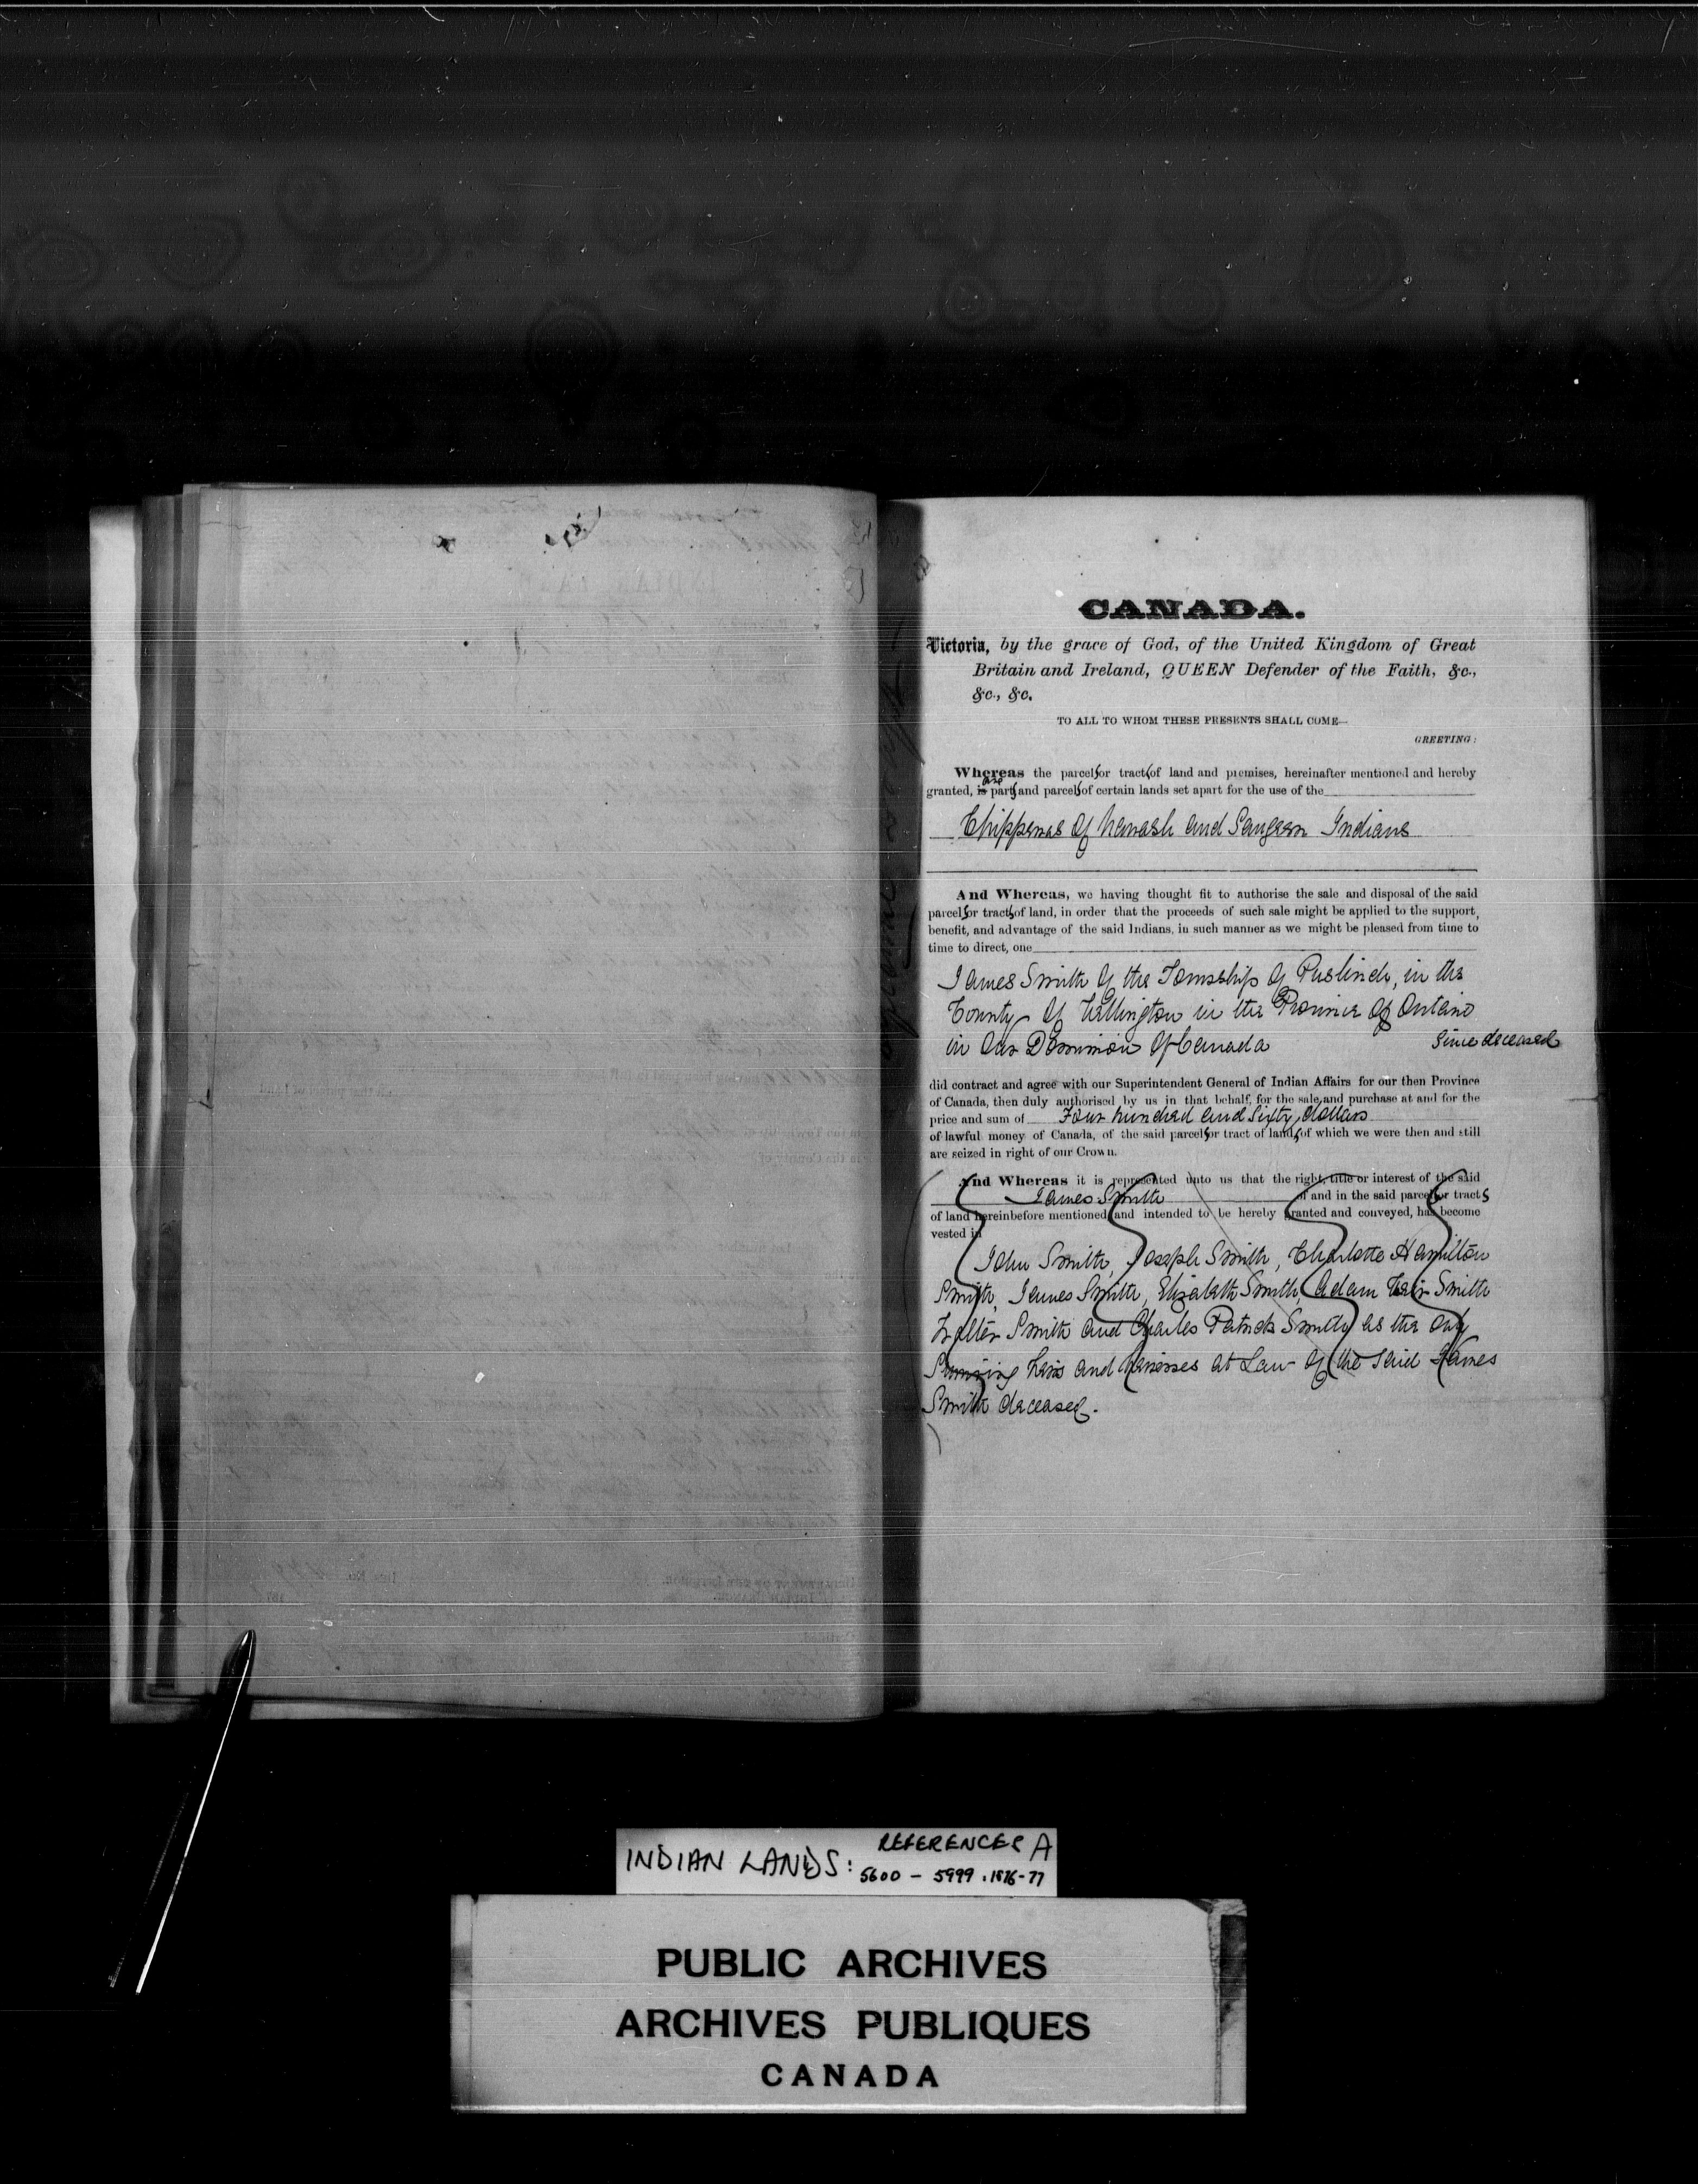 CANADA.
Victoria, by the grace of God, of the United Kingdom of Great
Britain and Ireland, QUEEN Defender of the Faith, &c.,
&c., &c.
TO ALL TO WHOM THESE PRESENTS SHALL COME—
GREETING:
Whereas the parcels or tracts of land and premises, hereinafter mentioned and hereby
are
granted, is parts and parcels of certain lands set apart for the use of the
Chippewas of Nawash and Saugeen Indians
And Whereas, we having thought fit to authorise the sale and disposal of the said
parcels or tracts of land, in order that the proceeds of such sale might be applied to the support,
benefit, and advantage of the said Indians, in such manner as we might be pleased from time to
time to direct, one
James Smith of the Township of Puslinch, in the
County of Wellington in the Province of Ontario
in Our Dominion of Canada since deceased
did contract and agree with our Superintendent General of Indian Affairs for our then Province
of Canada, then duly authorised by us in that behalf, for the sale and purchase at and for the
price and sum of Four hundred and Sixty dollars
of lawful money of Canada, of the said parcels or tract of lands, of which we were then and still
are seized in right of our Crown.
And Whereas it is represented unto us that the right, title or interest of the said
James Smith of and in the said parcels or tracts
of land hereinbefore mentioned and intended to be hereby granted and conveyed, has become
vested in
John Smith, Joseph Smith, Charlotte Hamilton
Smith, James Smith, Elizabeth Smith, Adam Smith
Walter Smith and Charles Patrick Smith as the only
Surviving heirs and heiresses at Law of the said James
Smith deceased.
INDIAN LANDS: REFERENCES A
5600 - 5999. 1876-77
PUBLIC ARCHIVES
ARCHIVES PUBLIQUES
CANADA